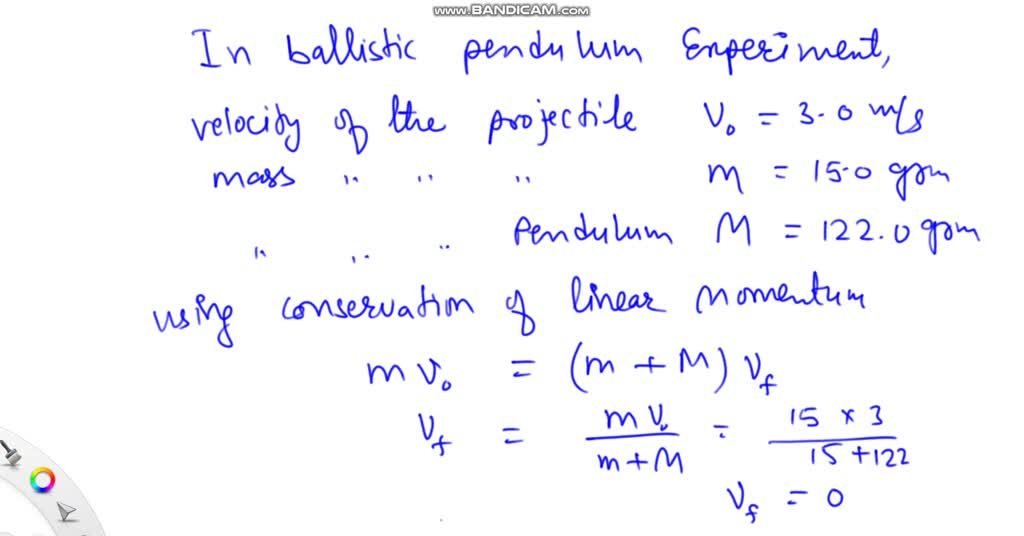 www.BANDICAM.com
In ballistic pendulum Experiment,
velocity of the projectile V₀ = 3.0 m/s
mass " " " m = 15.0 gm
" " " Pendulum M = 122.0 gm
using conservation of linear momentum
m V₀ = (m + M) V_f
V_f = m V₀ / m + M = 15 × 3 / 15 + 122
V_f = 0